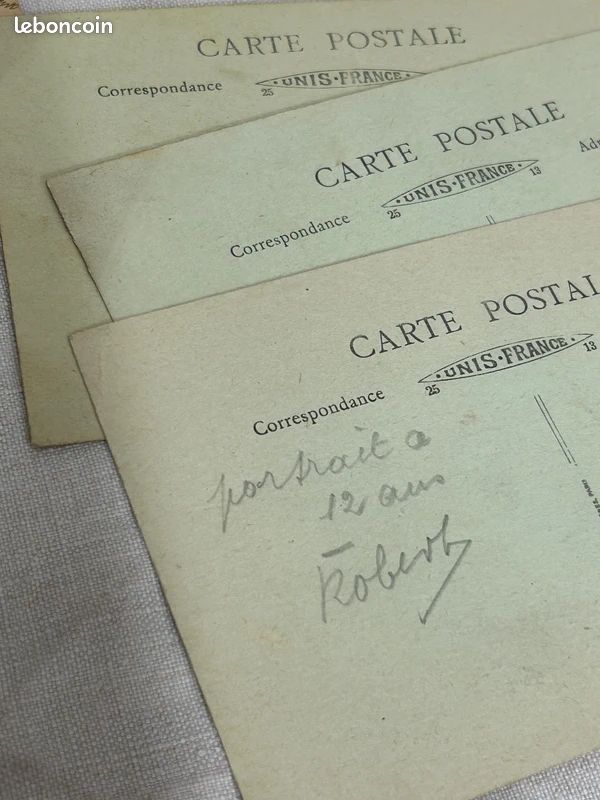 leboncoin
CARTE POSTALE
Correspondance
·UNIS·FRANCE·
25
CARTE POSTALE
·UNIS·FRANCE·
25 13
Correspondance
CARTE POSTAL
·UNIS·FRANCE·
25 13
Correspondance
portrait a
12 ans
Robert
PARIS